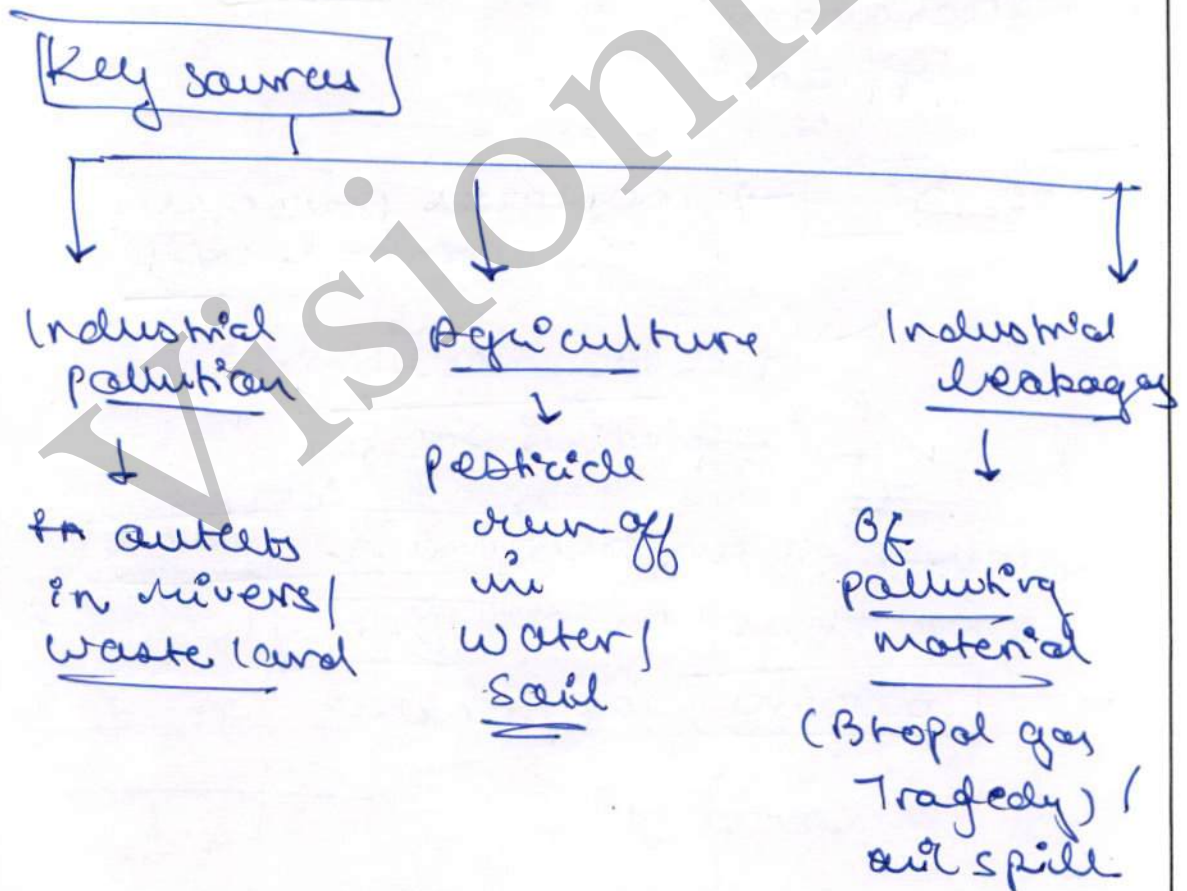 Key sources
Industrial
pollution
outlets
in rivers/
waste land
Agriculture
pesticide
run-off
in
water/
soil
Industrial
leakages
Of
polluting
material
(Bhopal gas
Tragedy) /
oil spill
Vision